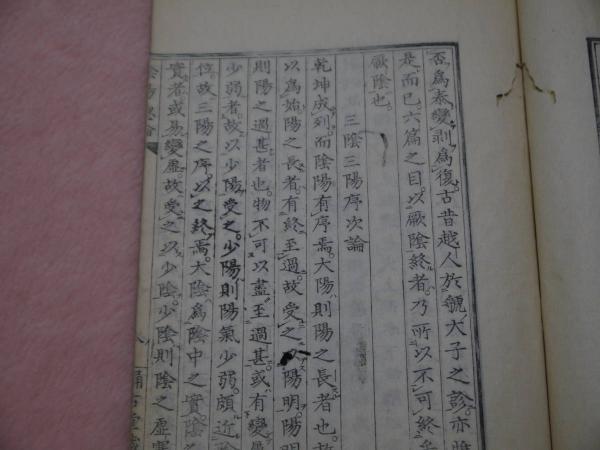 否爲泰變剥爲復古昔越人於虢大子之診亦
是而已六篇之目以厥陰終者乃所以不可終
厥陰也
三陰三陽序次論
乾坤成列而陰陽有序焉大陽則陽之長者也
以爲始陽之長者有終至過故受之以陽明陽明
則陽之過甚者也物不可以盡至過甚或有變
少弱者故以少陽受之少陽則陽氣少弱頗近
位故三陽之序以之終焉大陰爲陰中之實陰之
實者或易變虛故受之以少陰少陰則陰之虛